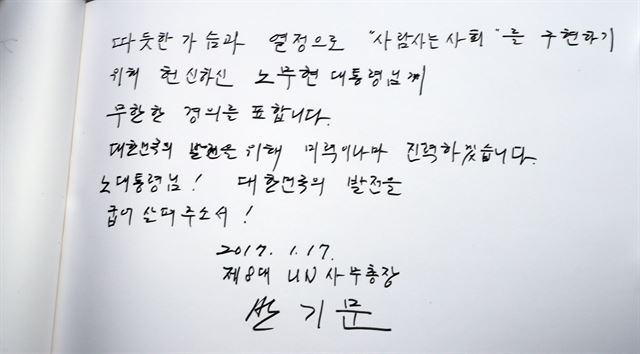 따듯한 가슴과 열정으로 "사람사는 사회"를 구현하기
위해 헌신하신 노무현 대통령님께
무한한 경의를 표합니다.
대한민국의 발전을 위해 미력이나마 진력하겠습니다.
노대통령님! 대한민국의 발전을
굽어 살펴주소서!
2017. 1. 17.
제8대 UN 사무총장
반기문